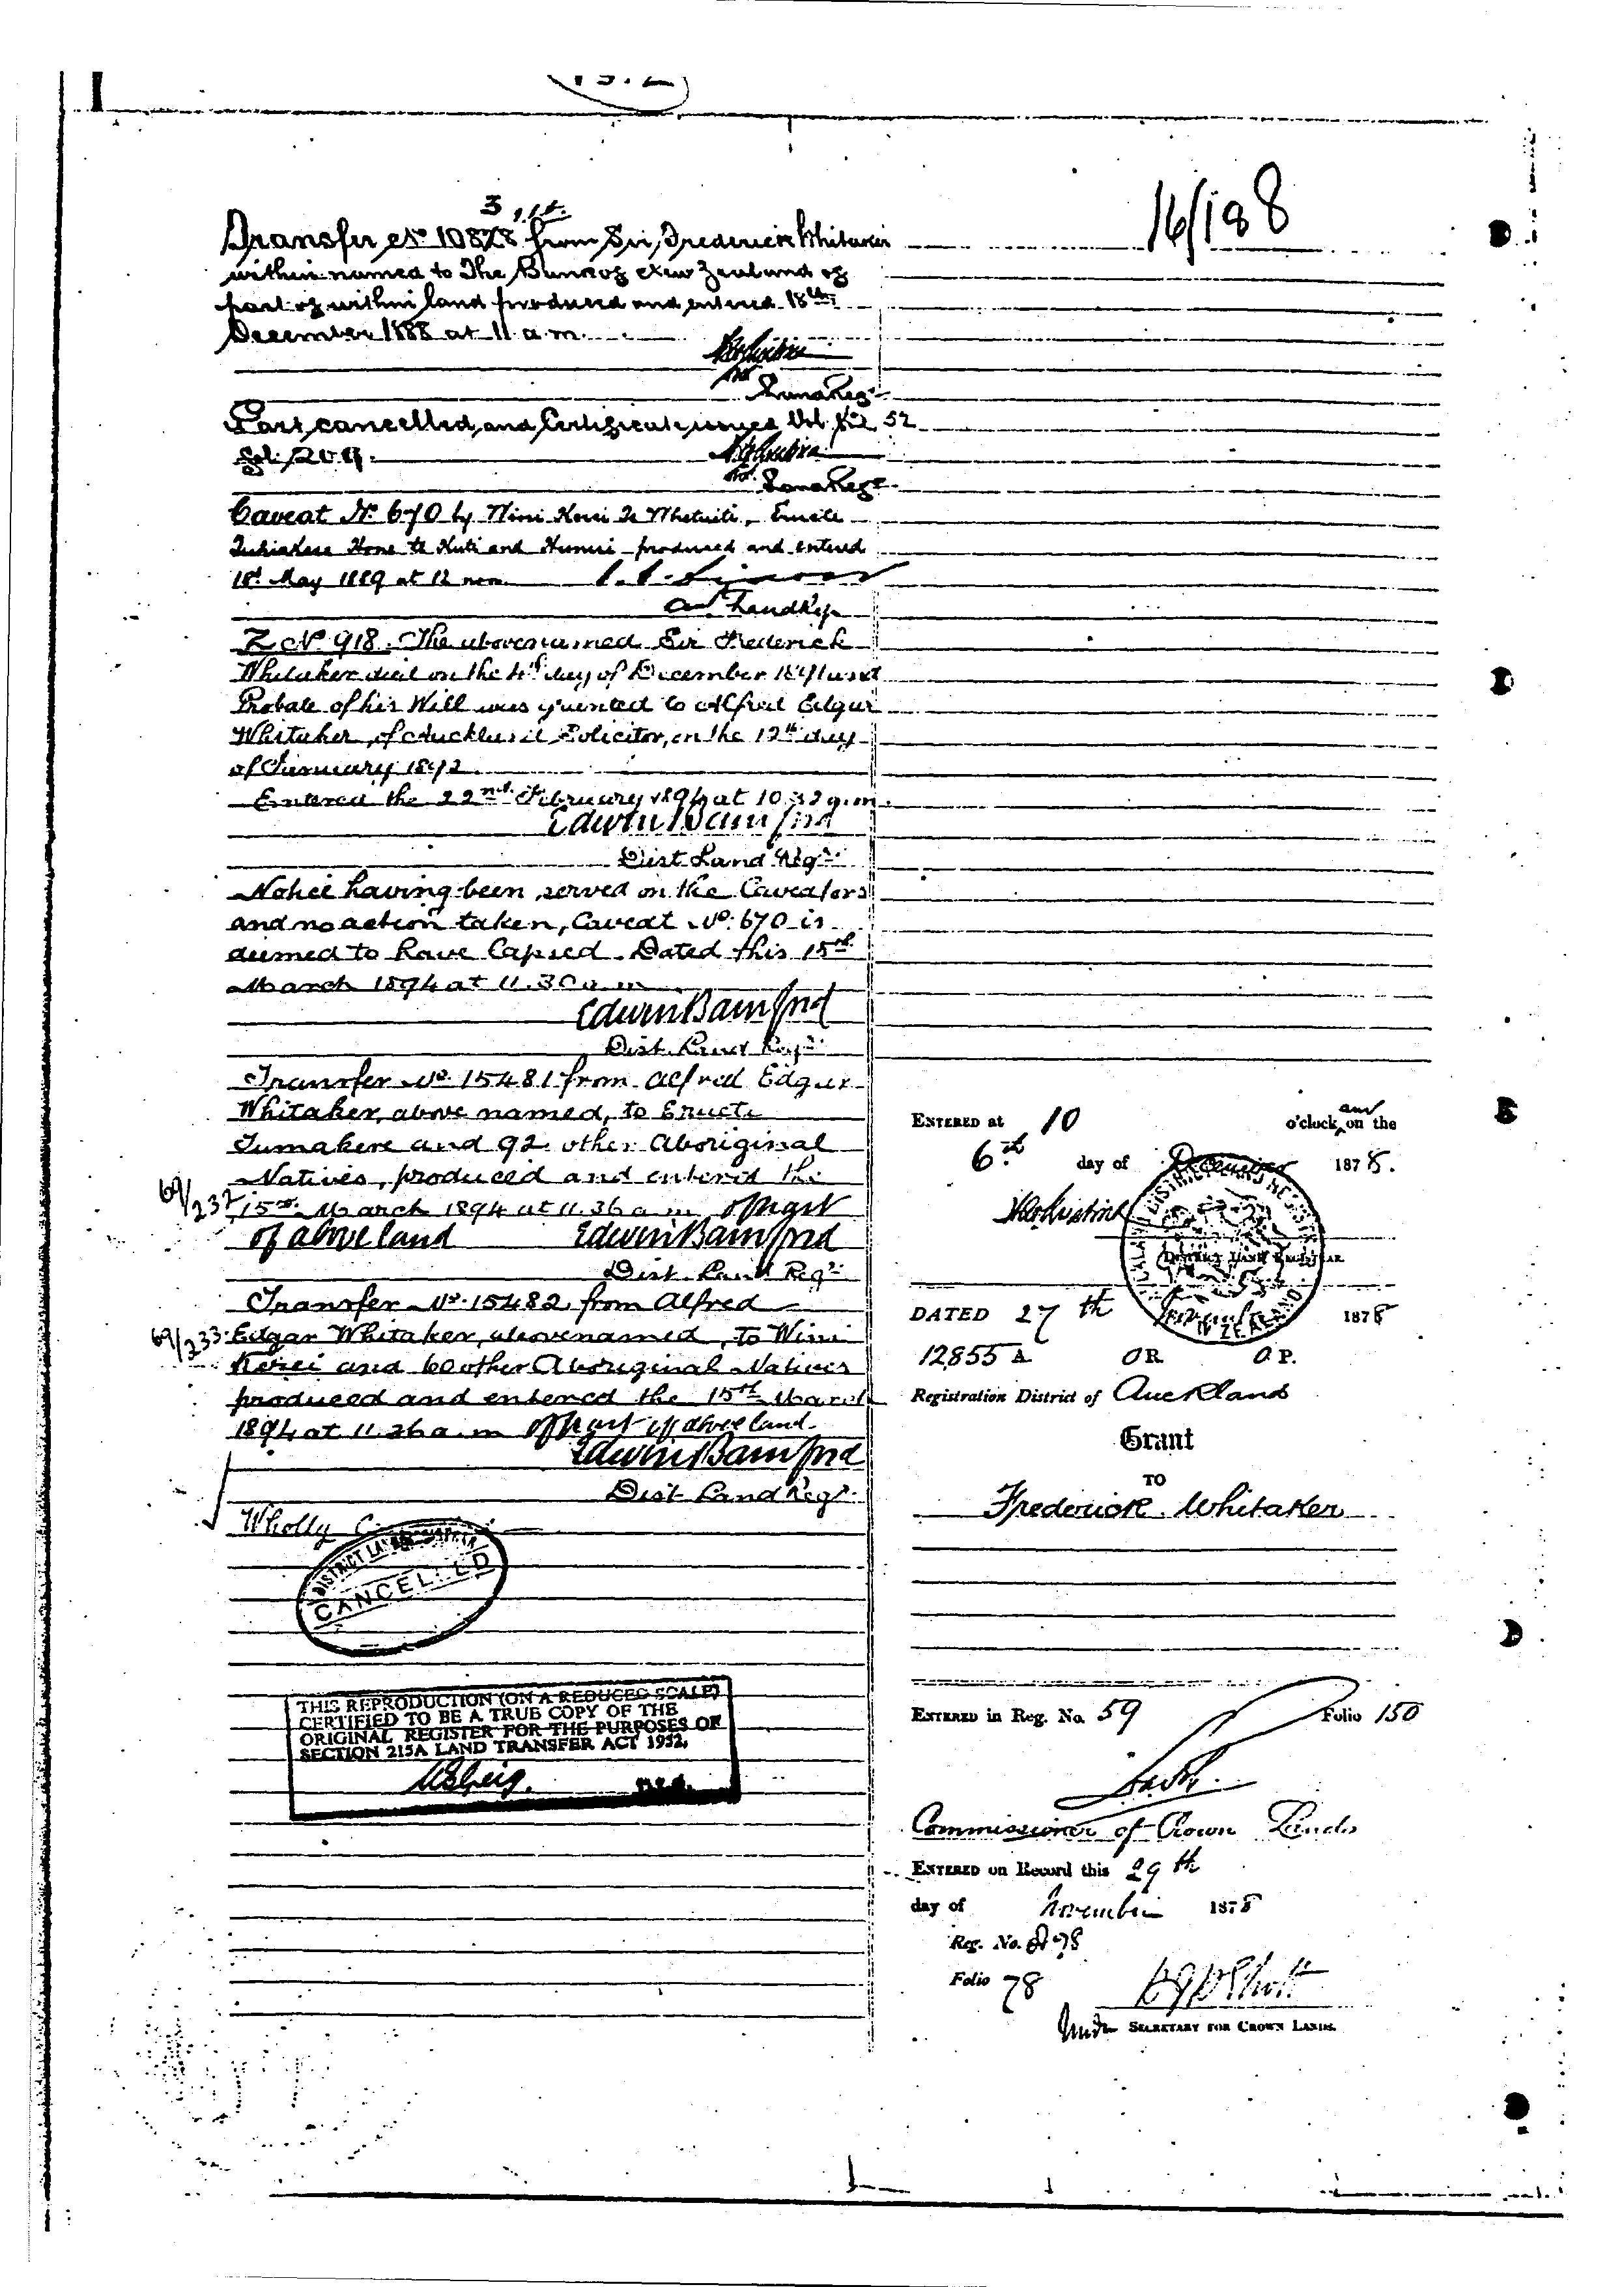 16/188
Transfer No 10878 from Sir, Frederick Whitaker
within named to The Bank of New Zealand of
part of within land produced and entered 18th
December 1888 at 11 a.m.
Land Regr
Part cancelled, and Certificate issued Vol. 52
Fol. 209.
Land Regr
Caveat No 670 by Wini Kerei Te Whetuiti, Erueti
Hone te Kuti and produced and entered
18th May 1889 at 12 noon
Land Regr
Z No 918. The abovenamed Sir Frederick
Whitaker died on the 4th day of December 1891 and
Probate of his Will was granted to Alfred Edgar
Whitaker, of Auckland Solicitor, on the 12th day
of January 1892
Entered the 22nd February 1894 at 10.32 a.m.
Edwin Bamford
Dist Land Regr
Notice having been served on the Caveators
and no action taken, Caveat No. 670 is
deemed to have lapsed. Dated this 15th
March 1894 at 11.30 a.m
Edwin Bamford
Dist. Land Regr
Transfer No. 15481 from Alfred Edgar
Whitaker, above named, to Erueti
Tumakere and 92 other Aboriginal
Natives, produced and entered the
69/232 15th March 1894 at 11.36 a.m of part
of above land Edwin Bamford
Dist. Land Regr
Transfer No. 15482 from Alfred
69/233 Edgar Whitaker, abovenamed, to Wini
Kerei and 60 other Aboriginal Natives
produced and entered the 15th March
1894 at 11.36 a.m of part of above land.
Edwin Bamford
Dist Land Regr.
Wholly C
DISTRICT LAND
CANCELLED
THIS REPRODUCTION (ON A REDUCED SCALE)
CERTIFIED TO BE A TRUE COPY OF THE
ORIGINAL REGISTER FOR THE PURPOSES OF
SECTION 215A LAND TRANSFER ACT 1952.
ENTERED at 10 o'clock am on the
6th day of December 1878.
DISTRICT LAND REGISTRAR
DATED 27th 1878
12855 A. 0 R. 0 P.
Registration District of Auckland
Grant
TO
Frederick Whitaker
ENTERED in Reg. No. 59 Folio 150
Commissioner of Crown Lands
ENTERED on Record this 29th
day of November 1878
Reg. No.
Folio 78
Under SECRETARY FOR CROWN LANDS.